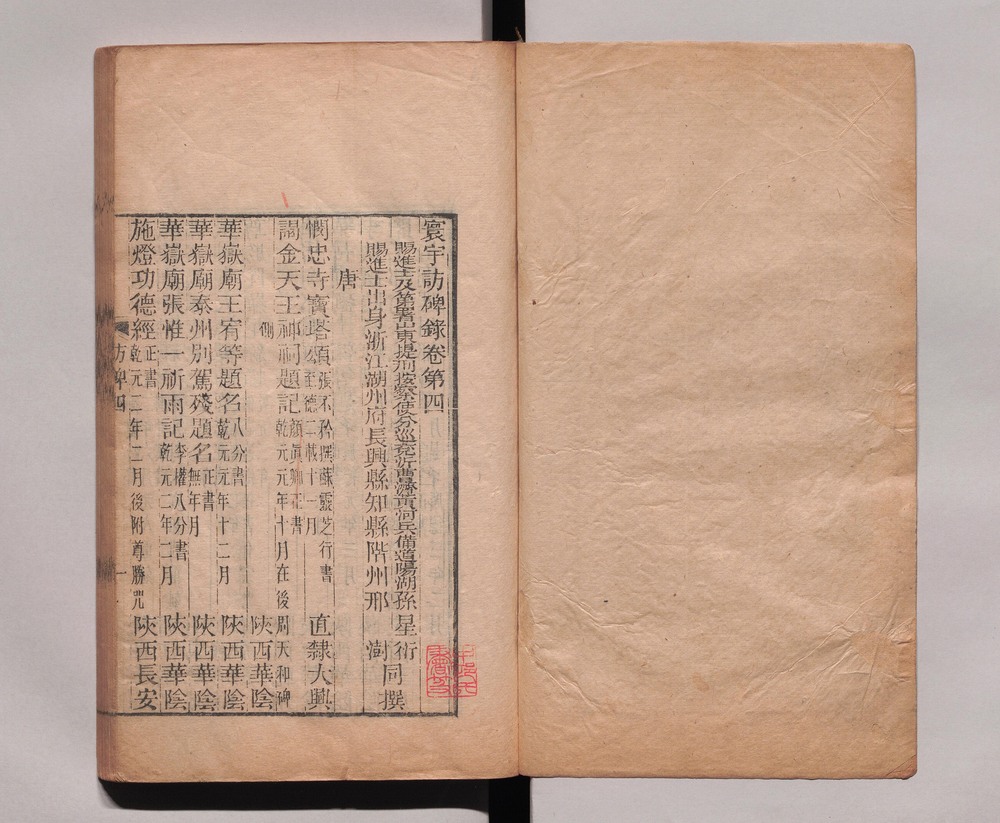 寰宇訪碑錄卷第四
賜進士及第署山東提刑按察使分巡兗沂曹濟黃河兵備道陽湖孫星衍
賜進士出身浙江湖州府長興縣知縣階州邢澍
同撰
唐
憫忠寺寶塔頌 張不矜撰蘇靈芝行書 至德二載十一月 直隸大興
謁金天王神祠題記 顏真卿正書 乾元元年十月在後周天和碑
側 陝西華陰
華嶽廟王宥等題名 八分書 乾元元年十二月 陝西華陰
華嶽廟泰州別駕殘題名 正書 無年月 陝西華陰
華嶽廟張惟一祈雨記 李權八分書 乾元二年二月 陝西華陰
施燈功德經 正書 乾元二年二月後附尊勝咒 陝西長安
方碑四
一